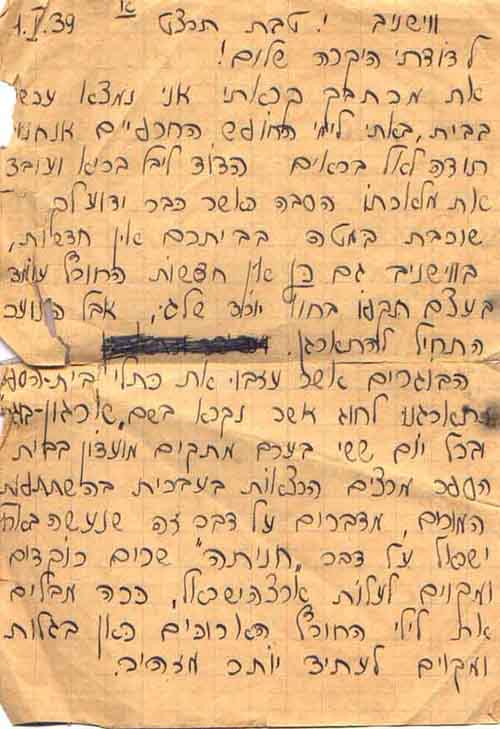 1.I.39 ווישניב י' טבת תרצט א
לדודתי היקרה שלום!
את מכתבך קראתי אני נמצא עכשו
בבית, באתי לימי החופש החרפיים אנחנו
תודה לאל בראים הדוד ליבל בריא ועובד
את מלאכתו הסבה כאשר כבר ידוע לך
שוכבת במטה בביתכם אין חדשות,
בווישניב גם כן אין חדשות החורף עומד
בעצם תקפו בחוץ יורד שלג, אבל הנוער
התחיל להתארגן.
הבוגרים אשר עזבו את כתלי בית-הספר
התארגנו לחוג אשר נקרא בשם, ארגון-בוגרי
ובכל יום ששי בערב מתקים מועדון בבית
הספר מרצים הרצאות בעברית בהשתתפות
המורים, מדברים על דבר זה שנעשה בארץ
ישראל על דבר "חניתה" שרים רוקדים
ומקוים לעלות ארצה ישראל, ככה מבלים
את לילי החורף הארוכים כאן בגלות
ומקוים לעתיד יותר מזהיר.